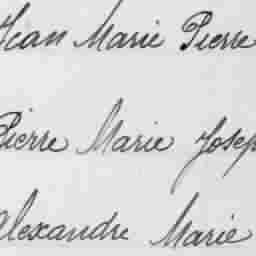 Jean Marie Pierre
Pierre Marie Josep
Alexandre Marie